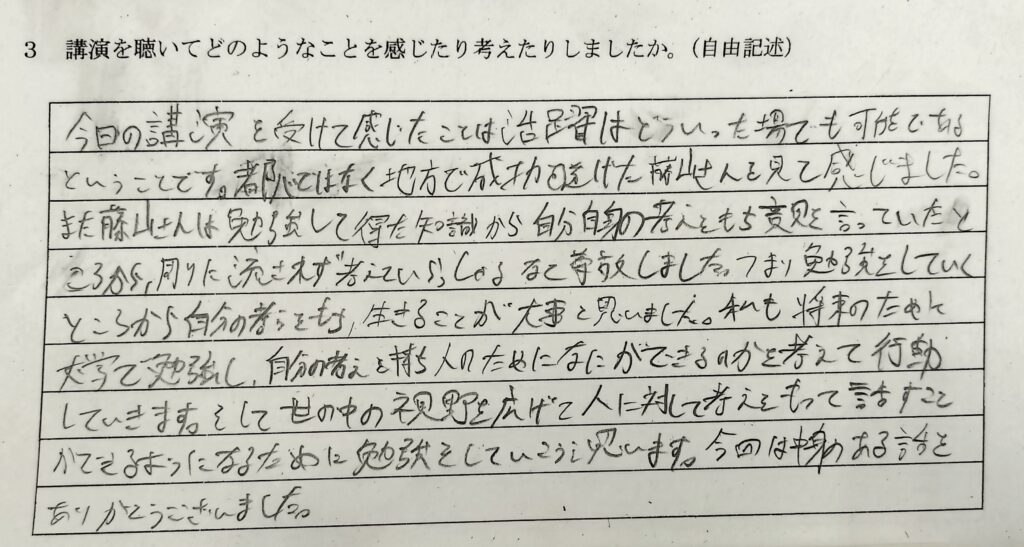 3　講演を聴いてどのようなことを感じたり考えたりしましたか。（自由記述）
今日の講演を受けて感じたことは活躍はどういった場でも可能である
ということです。都心ではなく地方で成功を遂げた藤山さんを見て感じました。
また藤山さんは勉強して得た知識から自分自身の考えをもち意見を言っていたと
ころから、周りに流されず考えていらっしゃるなと尊敬しました。つまり勉強をしていく
ところから自分の考えをもち、生きることが大事と思いました。私も将来のために
大学で勉強し、自分の考えを持ち人のためになにができるのかを考えて行動
していきます。そして世の中の視野を広げて人に対して考えをもって話すこと
ができるようになるために勉強をしていこうと思います。今回は中身のある話を
ありがとうございました。